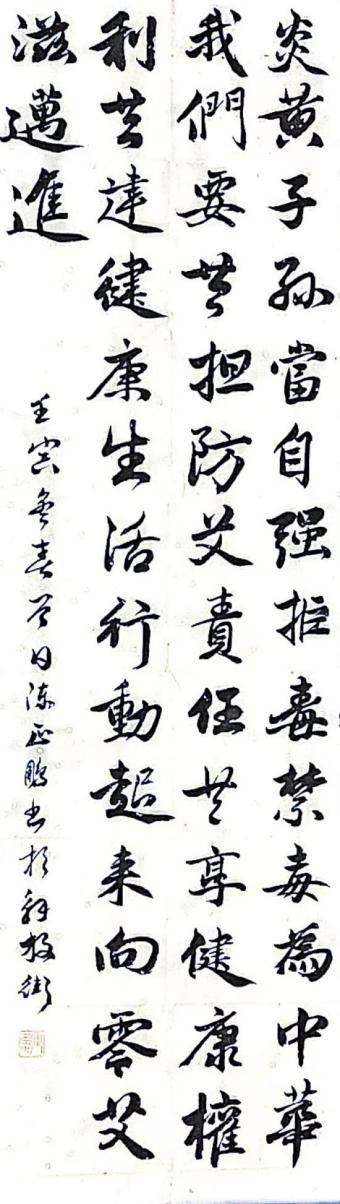 炎黄子孙當自强拒毒禁毒為中華
我們要共担防艾責任共享健康權
利共建健康生活行動起来向零艾
滋邁進
壬寅春日陈正鹏书於解放街